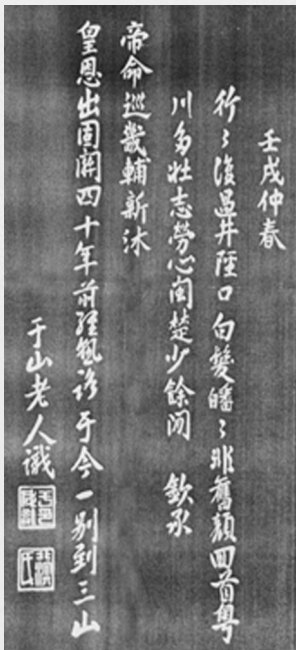 壬戌仲春
行〻復過井陘口白髮皤〻非舊顏回首粵
川多壯志勞心閩楚少餘閒　欽承
帝命巡畿輔新沐
皇恩出固關四十年前經熟路于今一別到三山
于山老人識